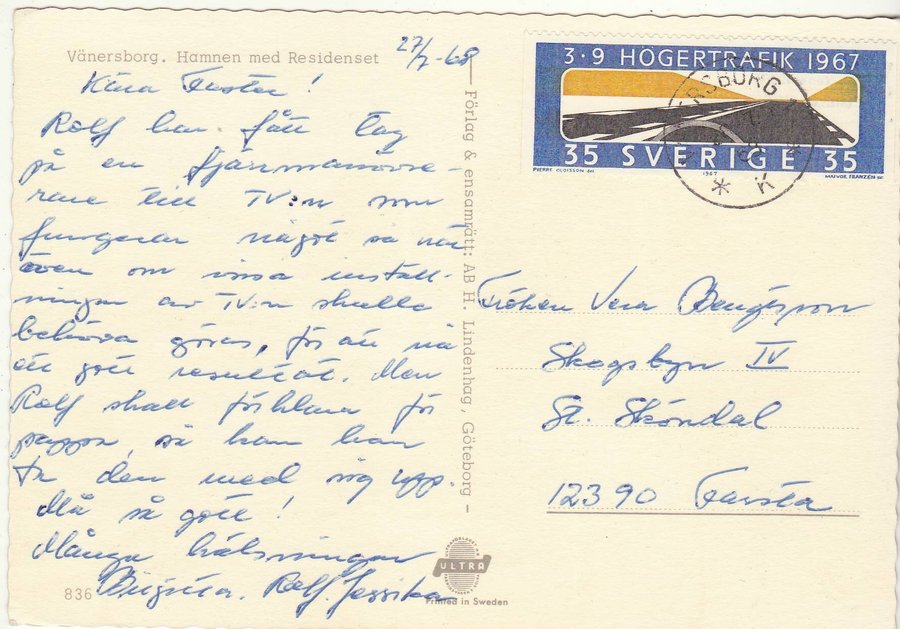 Vänersborg. Hamnen med Residenset
27/7-68
Kära Faster!
Rolf har fått tag
på en fjärrmanövre-
rare till TV:n som
fungerar något så när
även om vissa inställ-
ningar av TV:n skulle
behöva göras, för att nå
ett gott resultat. Men
Rolf skall förklara för
pappa, så kan han
ta den med sig upp.
Må så gott!
Många hälsningar
Birgitta. Rolf. Jessika
836
Förlag & ensamrätt: AB H. Lindenhag, Göteborg -
ULTRA
Printed in Sweden
3·9 HÖGERTRAFIK 1967
35 SVERIGE 35
PIERRE OLOFSSON del
1967
MAJVOR FRANZÉN sc
ERSBORG 1
* K *
Fröken Vera Bengtsson
Skogsbyn IV
St. Sköndal
12390 Farsta